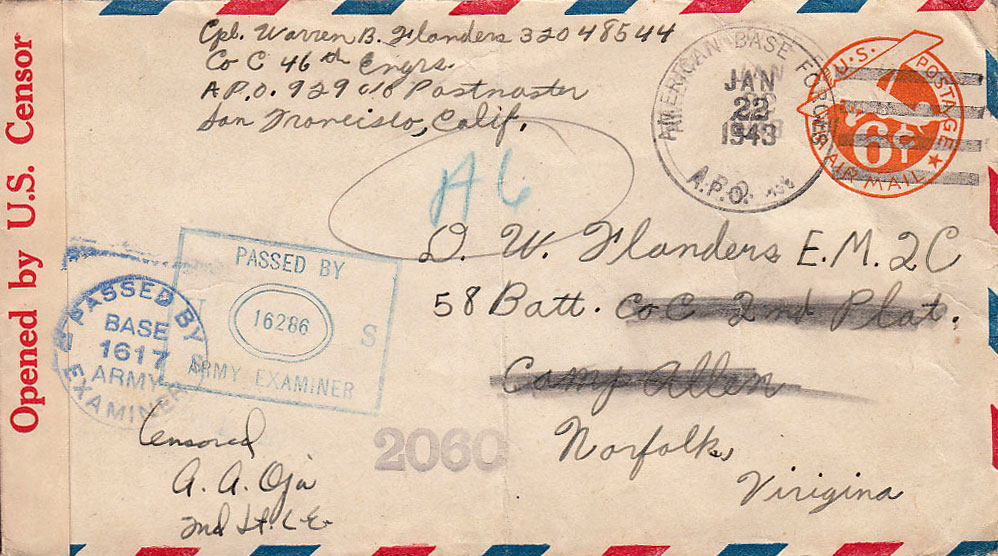 Opened by U.S. Censor
Cpl. Warren B. Flanders 32048544
Co C 46th Engrs.
A.P.O. 929 c/o Postmaster
San Francisco, Calif.
AMERICAN BASE FORCES
JAN
22
1943
A.P.O.
U.S. POSTAGE
6¢
AIR MAIL
A6
D. W. Flanders E.M.2C
58 Batt. Co C 2nd Plat.
Camp Allen
Norfolk,
Virigina
PASSED BY
U 16286 S
ARMY EXAMINER
PASSED BY
BASE
1617
ARMY
EXAMINER
2060
Censored
A. A. Oja
2nd Lt. C.E.